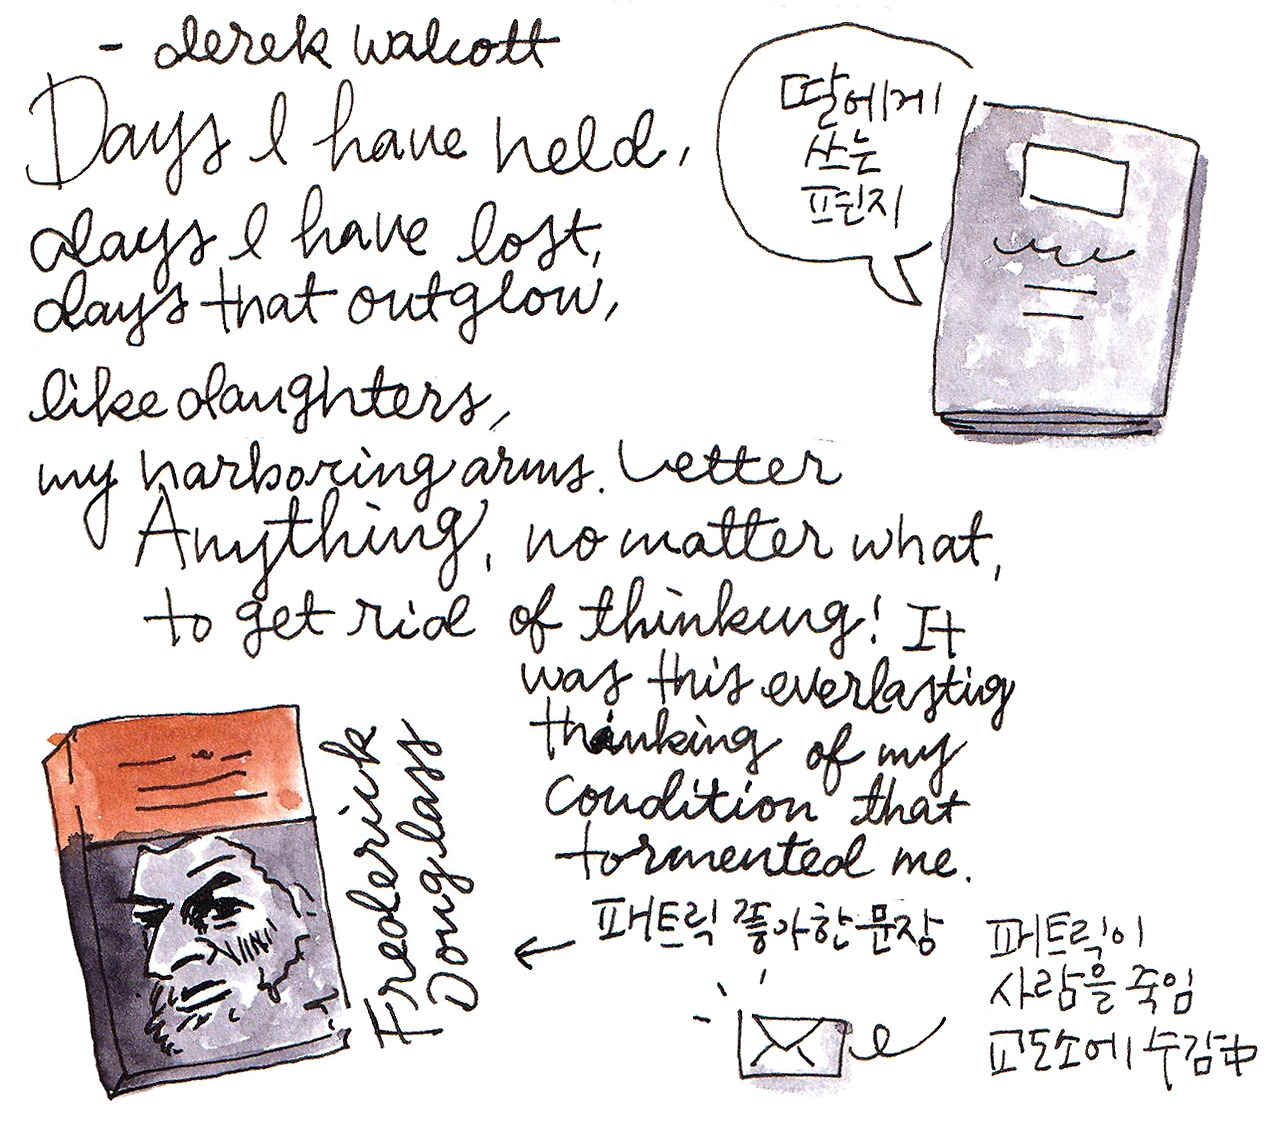 - derek walcott
Days I have held,
days I have lost,
days that outglow,
like daughters,
my harboring arms. Letter
딸에게
쓰는
편지
Anything, no matter what,
to get rid of thinking! It
was this everlasting
thinking of my
condition that
tormented me.
Frederick
Douglass
패트릭 좋아한 문장
패트릭이
사람을 죽임
교도소에 수감中